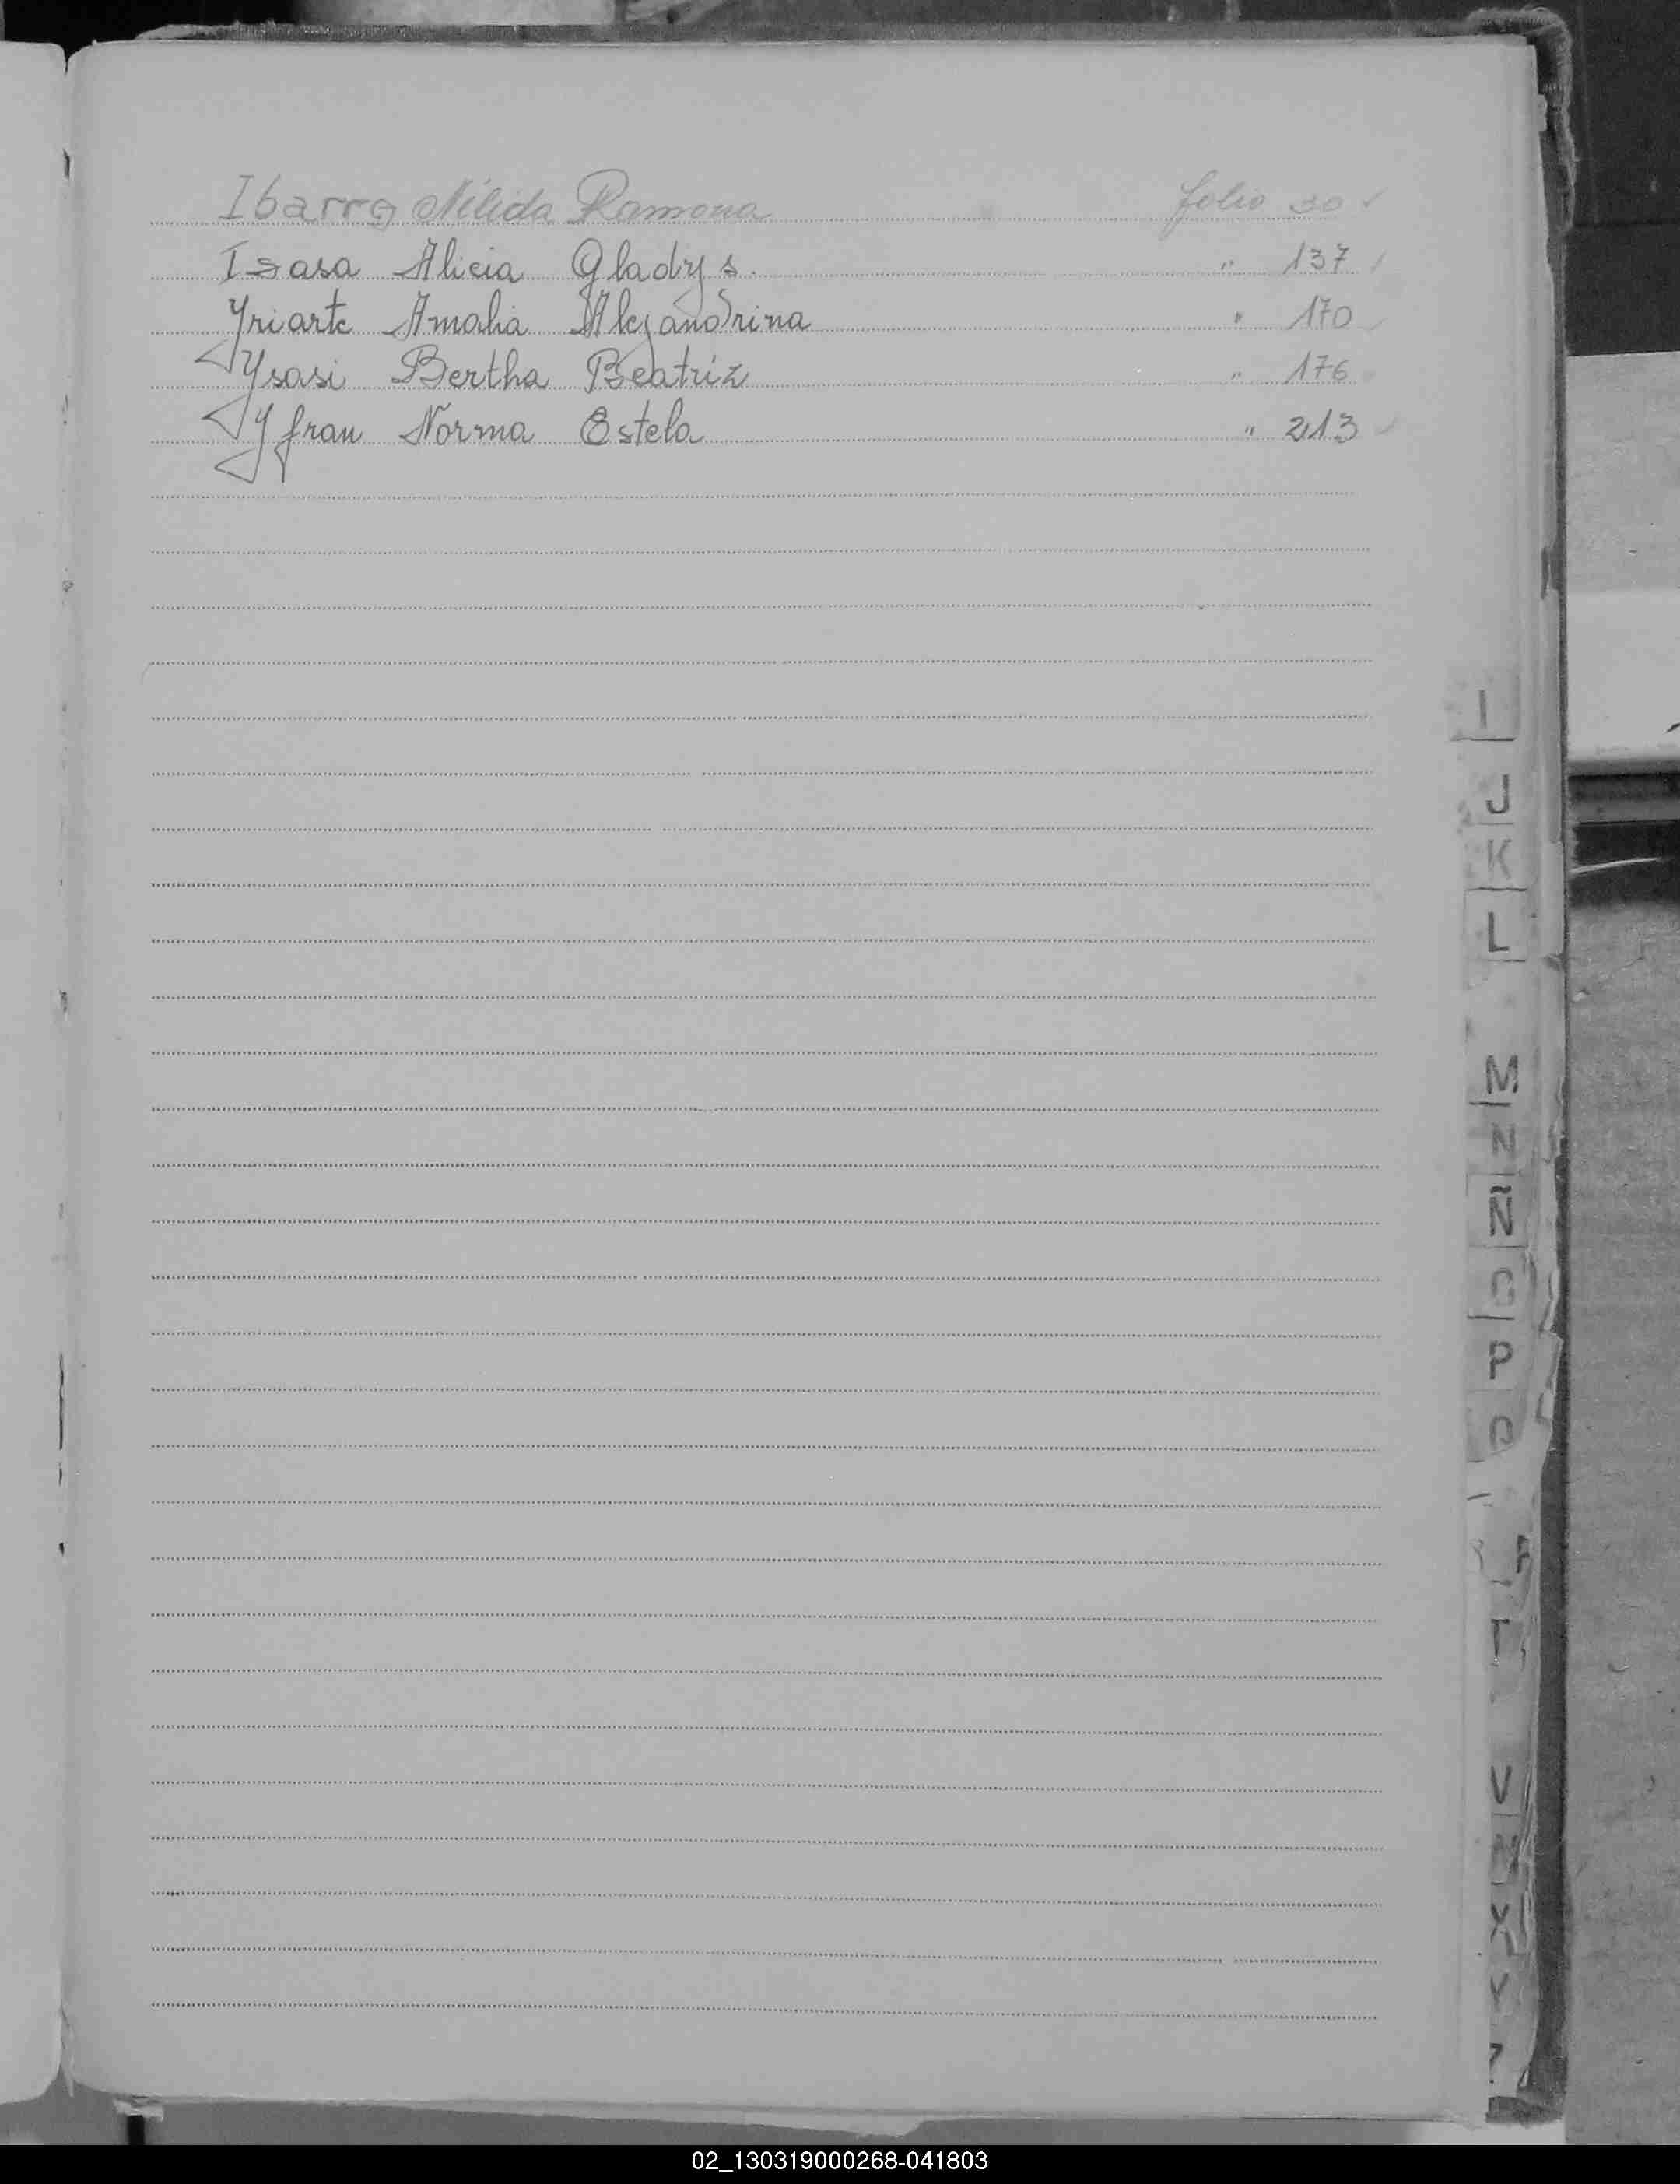 Ibarra Nélida Ramona folio 30 ✓
Isasa Alicia Gladys. " 137
Yriarte Amalia Alejandrina " 170
Ysasi Bertha Beatriz " 176
Yfran Norma Estela " 213
I
J
K
L
M
N
Ñ
O
P
Q
T
V
X
Y
Z
02_130319000268-041803